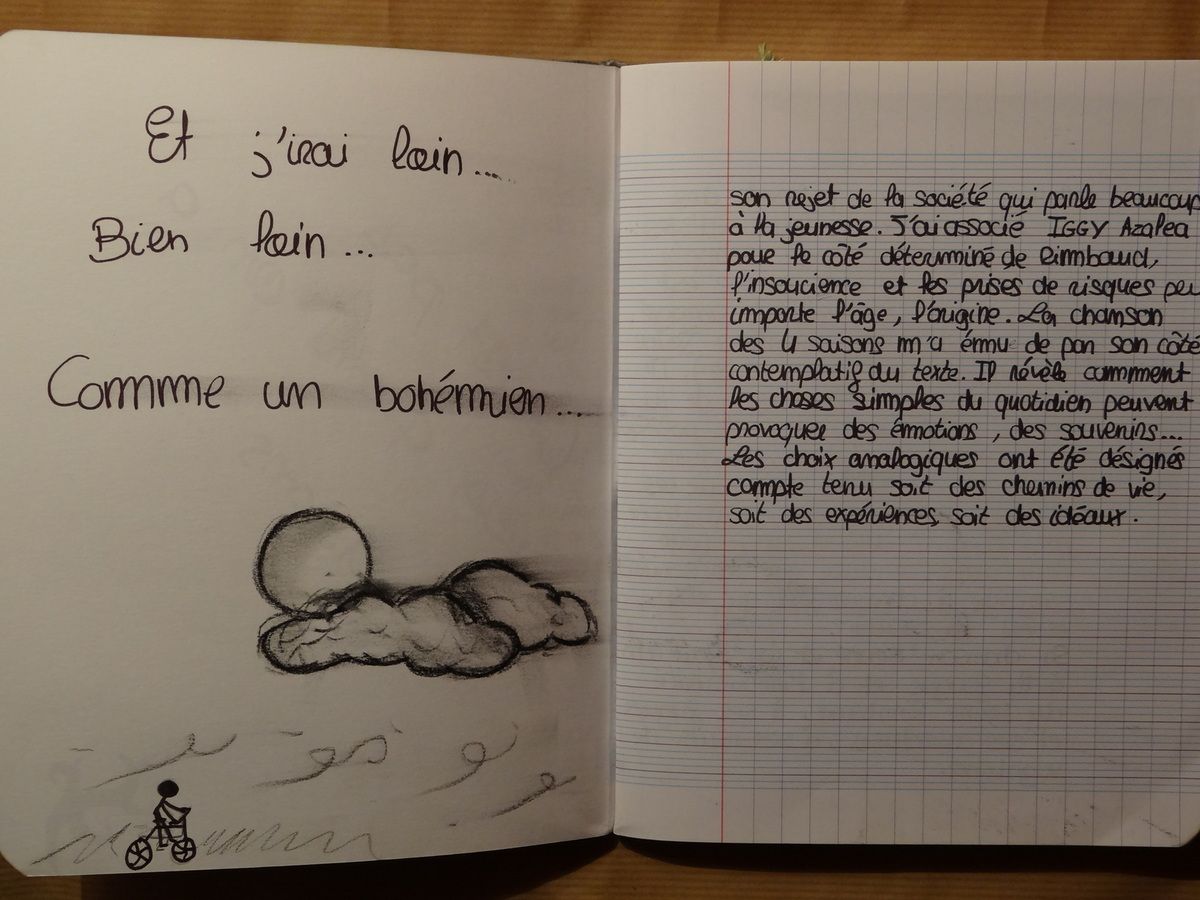 Et j'irai loin...
Bien loin...
Comme un bohémien...
son rejet de la société qui parle beaucoup
à la jeunesse. J'ai associé IGGY Azalea
pour le côté déterminé de Rimbaud,
l'insoucience et les prises de risques peu
importe l'âge, l'origine. La chanson
des 4 saisons m'a ému de par son côté
contemplatif du texte. Il révèle comment
les choses simples du quotidien peuvent
provoquer des émotions, des souvenirs...
Les choix analogiques ont été désignés
compte tenu soit des chemins de vie,
soit des expériences, soit des idéaux.